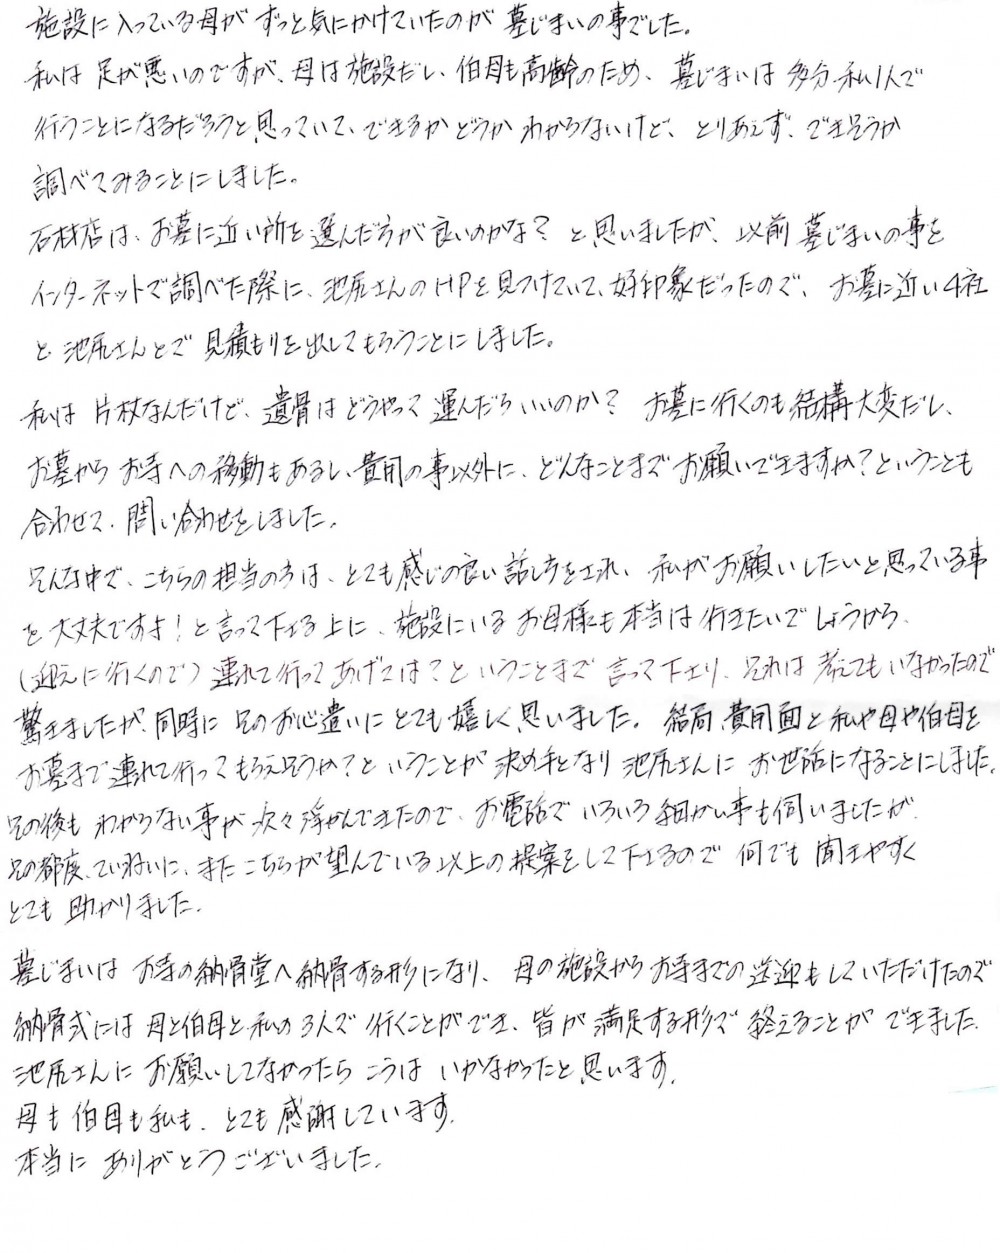 施設に入っている母がずっと気にかけていたのが墓じまいの事でした。
私は足が悪いのですが、母は施設だし、伯母も高齢のため、墓じまいは多分私1人で
行うことになるだろうと思っていて、できるかどうかわからないけど、とりあえず、できそうか
調べてみることにしました。
石材店は、お墓に近い所を選んだ方が良いのかな？と思いましたが、以前墓じまいの事を
インターネットで調べた際に、池尻さんのHPを見つけていて、好印象だったので、お墓に近い4社
と池尻さんとで見積もりを出してもらうことにしました。
私は片杖なんだけど、遺骨はどうやって運んだらいいのか？お墓に行くのも結構大変だし、
お墓からお寺への移動もあるし、費用の事以外に、どんなことまでお願いできますか？ということも
合わせて、問い合わせをしました。
そんな中で、こちらの担当の方は、とても感じの良い話し方をされ、私がお願いしたいと思っている事
を大丈夫ですよ！と言って下さる上に、施設にいるお母様も本当は行きたいでしょうから、
(迎えに行くので)連れて行ってあげては？ということまで言って下さり、それは考えてもいなかったので
驚きましたが、同時にそのお心遣いにとても嬉しく思いました。結局、費用面と私や母や伯母を
お墓まで連れて行ってもらえそうか？ということが決め手となり池尻さんにお世話になることにしました。
その後もわからない事が次々浮かんできたので、お電話でいろいろ細かい事も伺いましたが、
その都度、ていねいに、またこちらが望んでいる以上の提案をして下さるので何でも聞きやすく
とても助かりました。
墓じまいはお寺の納骨堂へ納骨する形になり、母の施設からお寺までの送迎もしていただけたので
納骨式には母と伯母と私の3人で行くことができ、皆が満足する形で終えることができました。
池尻さんにお願いしてなかったらこうはいかなかったと思います。
母も伯母も私も、とても感謝しています。
本当にありがとうございました。